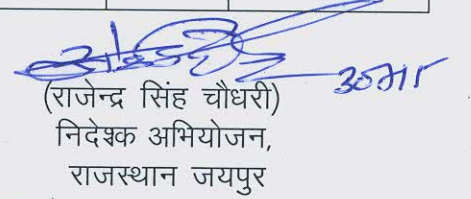 (राजेन्द्र सिंह चौधरी)
निदेश्क अभियोजन,
राजस्थान जयपुर